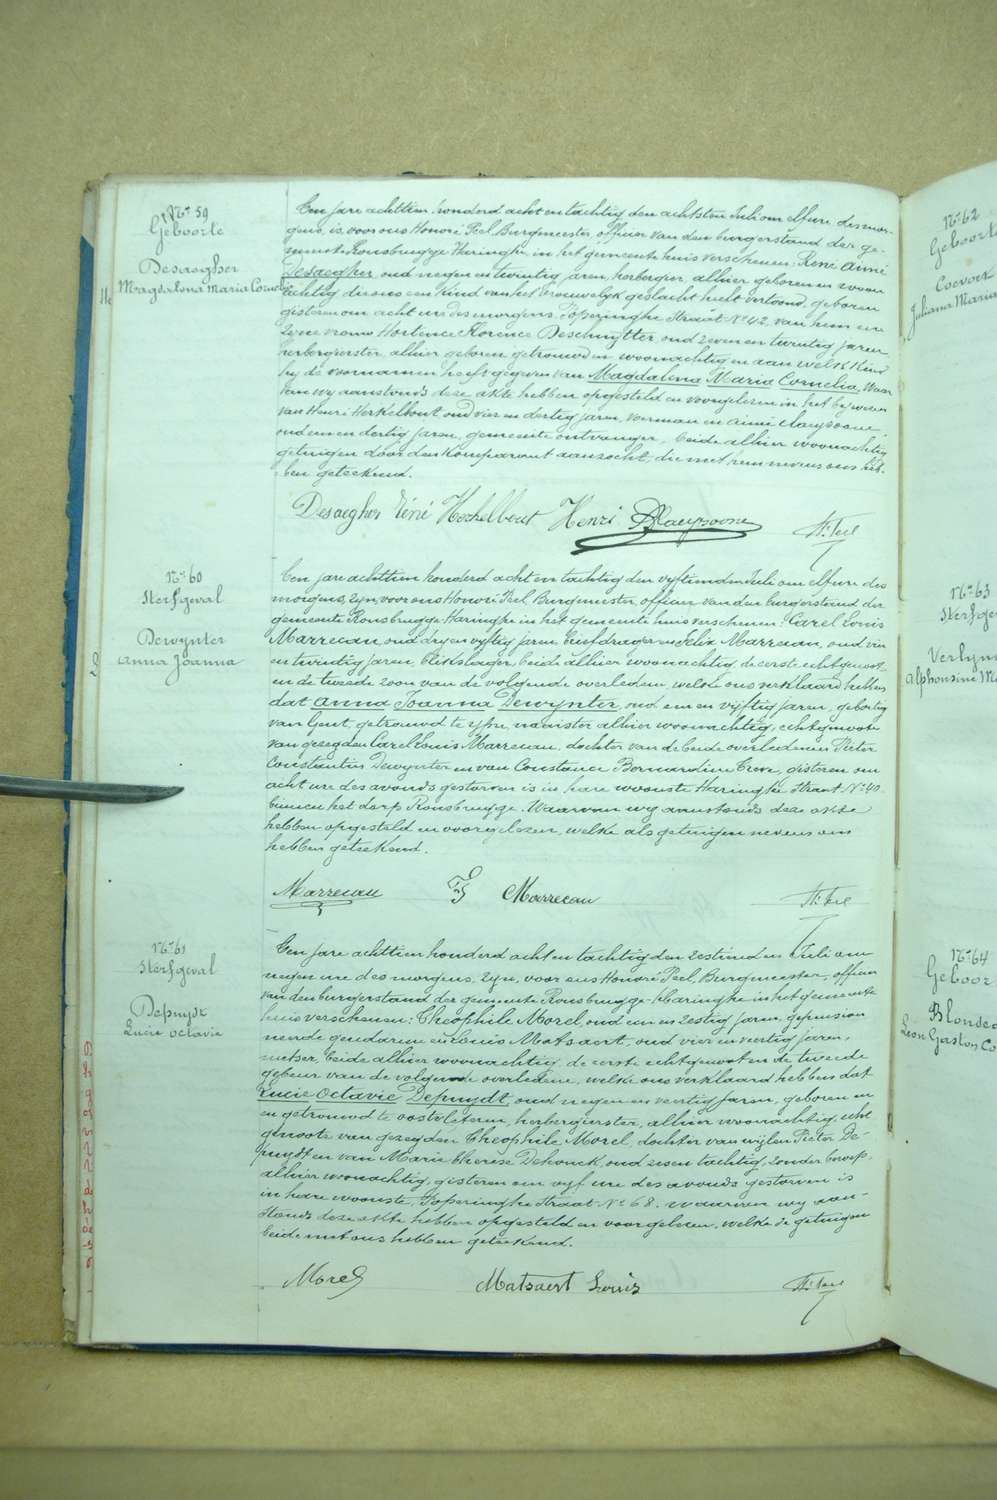 Nr 59
Geboorte
Desaegher
Magdalena Maria Cornelia
Een jare achttien honderd acht en tachtig den achtsten Juli om elf ure des mor-
gens, is voor ons Honoré Peel, Burgmeester, officier van den burgerstand der ge-
meente Rousbrugge Haringhe, in het gemeentehuis verschenen: René Aimé
Desaegher, oud negen en twintig jaren, herbergier, alhier geboren en woon-
achtig, die ons een kind van het vrouwelijk geslacht heeft vertoond, geboren
gisteren om acht ure des morgens, Poperinghe Straat No 42, van hem en
zyne vrouw Hortence Florence Deschuytter oud zeven en twintig jaren,
herbergierster, alhier geboren, getrouwd en woonachtig en aan welk kind
hy de voornamen heeft gegeven van Magdalena Maria Cornelia. Waar
van wy aanstonds deze akte hebben opgesteld en voorgelezen in het bywezen
van Henri Herkelbout, oud vier en dertig jaren, veeman en Aimé Claeysoone
oud een en dertig jaren, gemeente ontvanger, beide alhier woonachtig
getuigen door den komparant aanzocht, die met hem nevens ons heb-
ben geteekend.
Desaegher Réné Herkelbout Henri A Claeysoone H. Peel
Nr 60
Sterfgeval
Dewynter
Anna Joanna
Een jare achttien honderd acht en tachtig den vyftienden Juli om elf ure des
morgens, zyn voor ons Honoré Peel, Burgmeester, officier van den burgerstand der
gemeente Rousbrugge Haringhe in het gemeentehuis verschenen: Carel Louis
Marrecau, oud dry en vyftig jaren, briefdrager en Felix Marrecau, oud vier
en twintig jaren, blikslager, beide alhier woonachtig, de eerste echtgenoot
en de tweede zoon van de volgende overledene, welke ons verklaard hebben
dat Anna Joanna Dewynter, oud een en vyftig jaren, geboortig
van Gent, getrouwd te Ypre, naaister alhier woonachtig, echtgenoote
van gezegden Carel Louis Marrecau, dochter van de beide overledenen Pieter
Constantin Dewynter en van Constance Bernardine Creve, gisteren om
acht ure des avonds gestorven is in hare woonste Haringhe Straat No 40
binnen het dorp Rousbrugge. Waarvan wy aanstonds deze akte
hebben opgesteld en voorgelezen, welke als getuigen nevens ons
hebben geteekend.
Marrecau F Marrecau H. Peel
Nr 61
Sterfgeval
Depuydt
Lucie Octavie
Een jare achttien honderd acht en tachtig den zestienden Juli om
negen ure des morgens, zyn, voor ons Honoré Peel, Burgmeester, officier
van den burgerstand der gemeente Rousbrugge-Haringhe in het gemeente
huis verschenen: Theophile Morel, oud een en zestig jaren, gepension
neerde gendarm en Louis Matsaert, oud vier en veertig jaren,
metser, beide alhier woonachtig, de eerste echtgenoot en de tweede
gebuur van de volgende overledene, welke ons verklaard hebben dat
Lucie Octavie Depuydt, oud negen en veertig jaren, geboren en
en getrouwd te Oostvleteren, herbergierster, alhier woonachtig, echt
genoote van gezegden Theophile Morel, dochter van wylen Pieter De-
puydt en van Marie Therese Dehonck, oud zes en tachtig, zonder beroep,
alhier woonachtig, gisteren om vyf ure des avonds gestorven is
in hare woonste, Poperinghe Straat No 68. Waarvan wy aan-
stonds deze akte hebben opgesteld en voorgelezen, welke de getuigen
beide met ons hebben geteekend.
Morel Matsaert Louis H. Peel
No 62
Geboorte
Coevoet
Juliana Maria
No 63
Sterfge
Verlyn
Alphonsine Ma
No 64
Geboor
Blondea
Léon Gaston Co